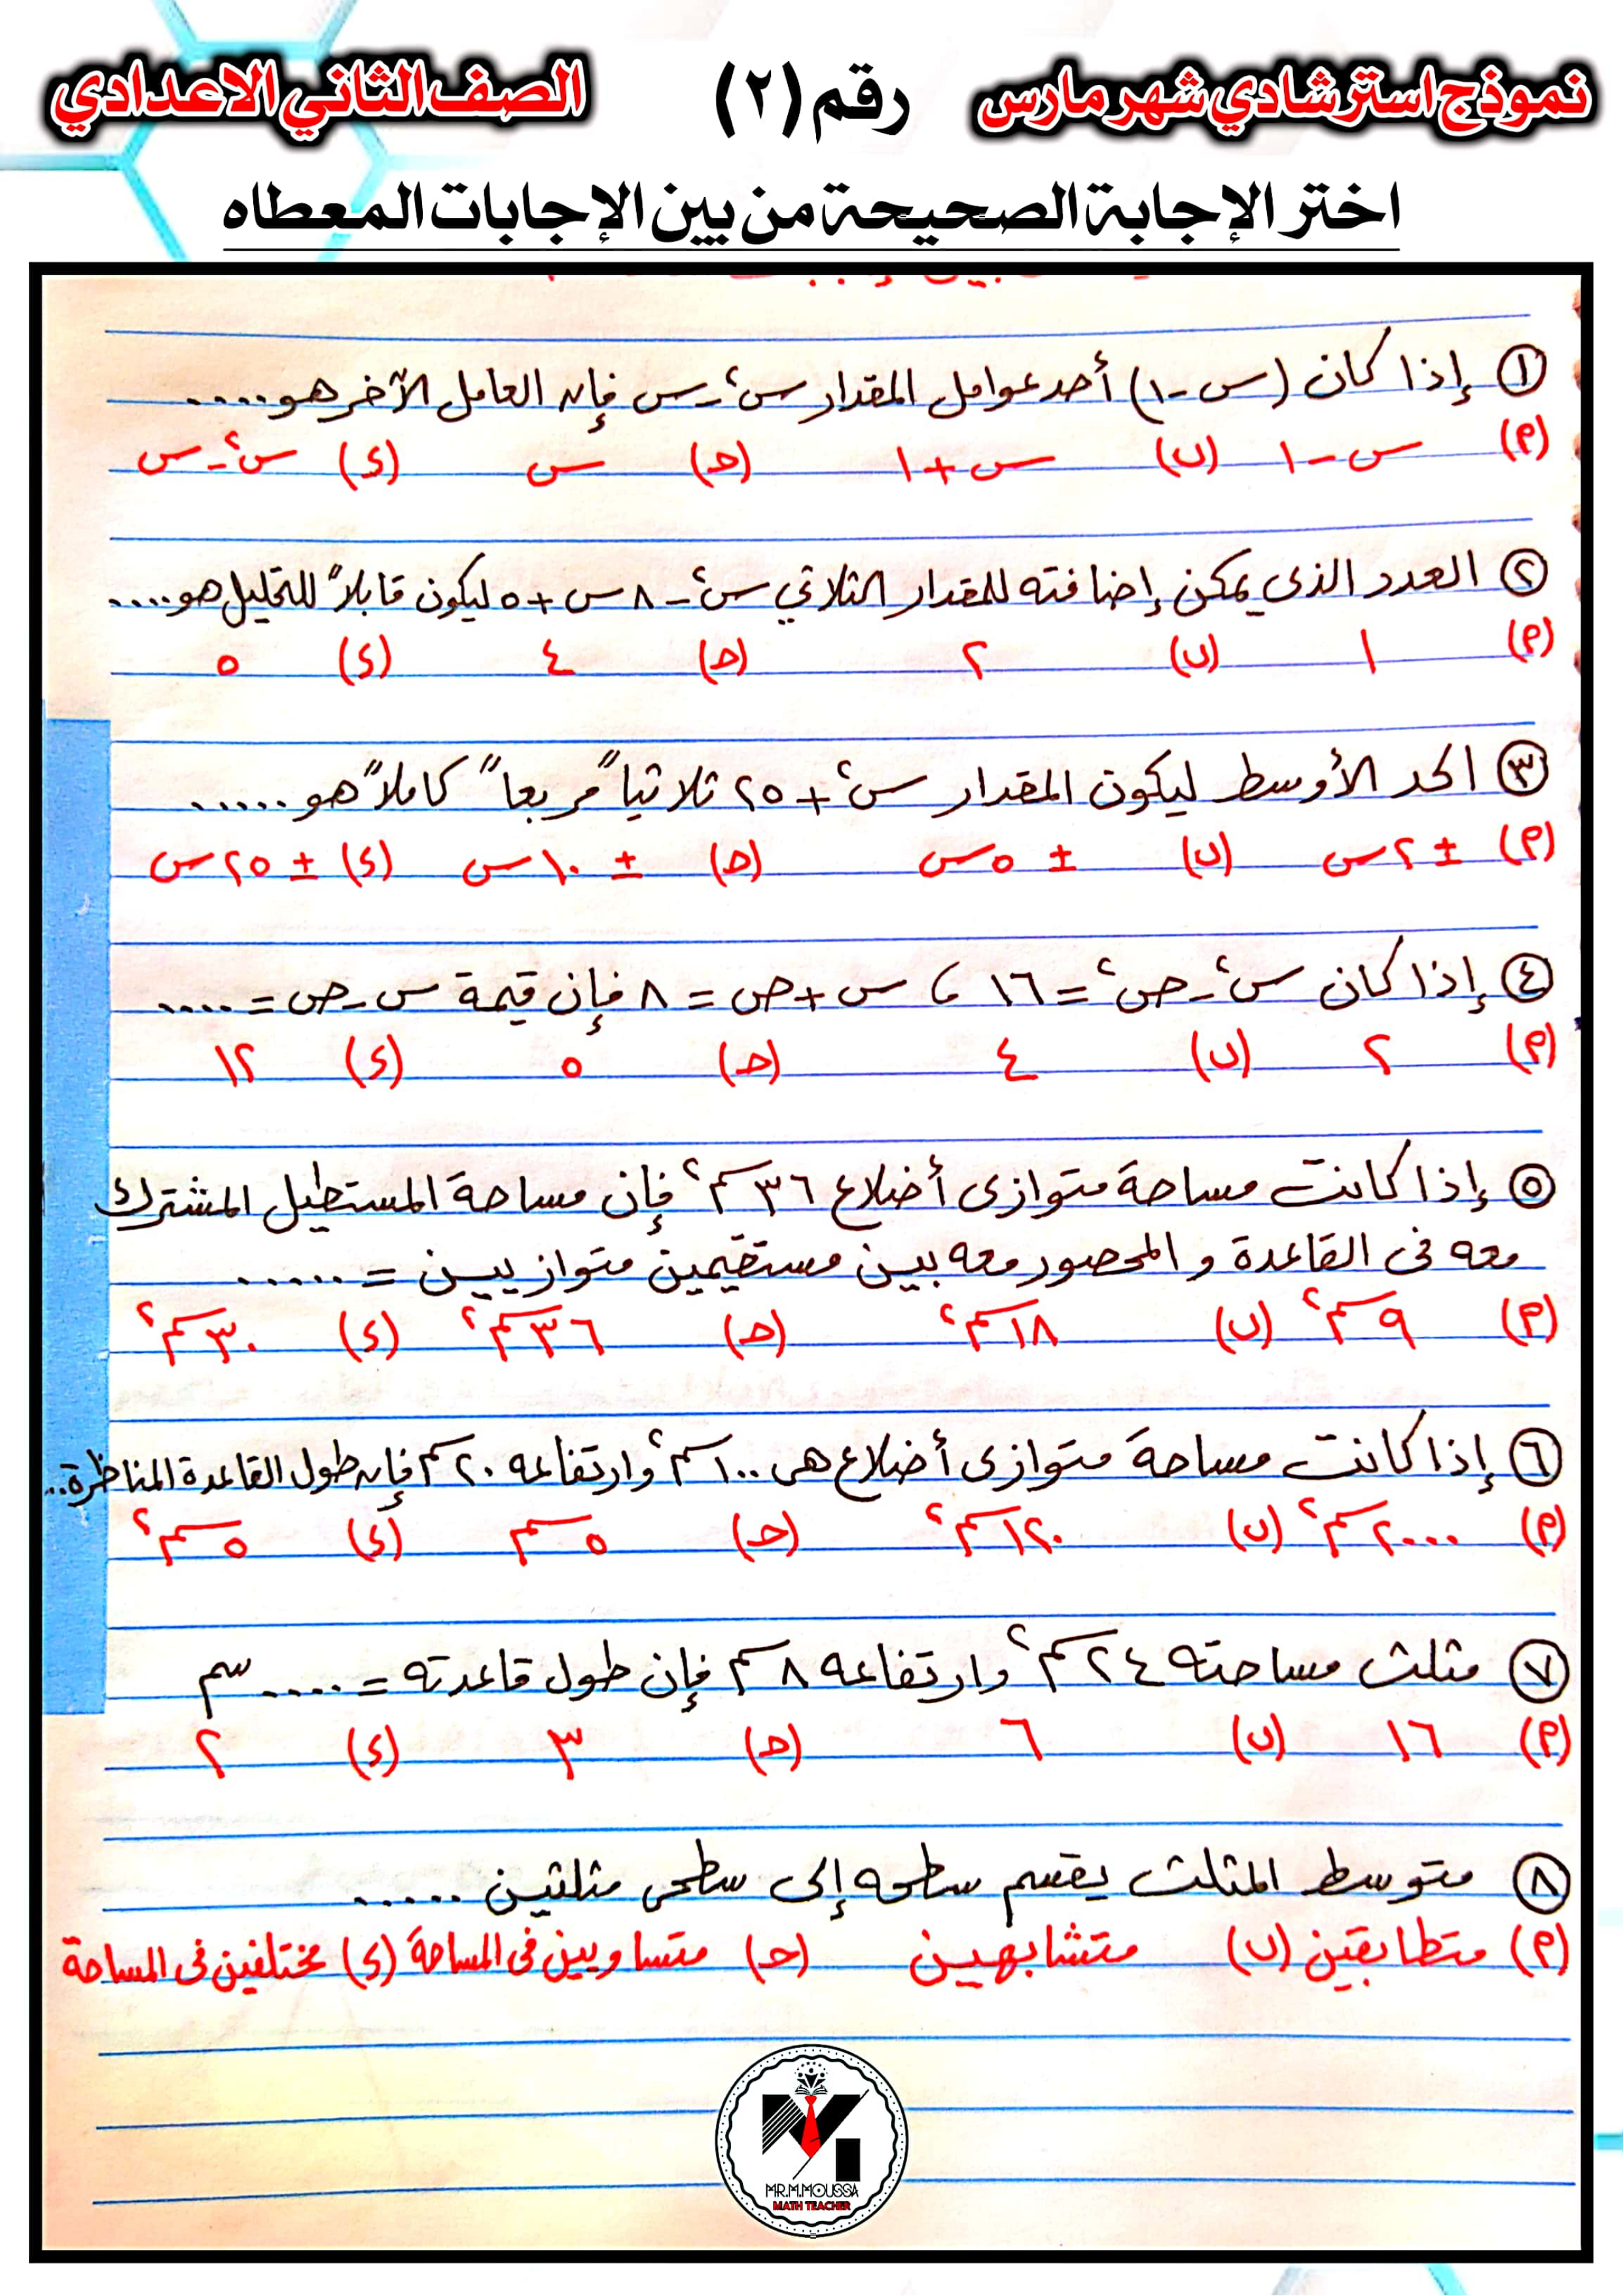 نموذج استرشادي شهر مارس رقم (٢) الصف الثاني الاعدادي
اختر الإجابة الصحيحة من بين الإجابات المعطاه
١ إذا كان (س - ١) أحد عوامل المقدار س² - س فإن العامل الآخر هو ....
(أ) س - ١ (ب) س + ١ (ج) س (د) س² - س
٢ العدد الذى يمكن إضافته للمقدار الثلاثي س² - ٨ س + ٥ ليكون قابلاً للتحليل هو ....
(أ) ١ (ب) ٢ (ج) ٤ (د) ٥
٣ الحد الأوسط ليكون المقدار س² + ٢٥ ثلاثياً مربعاً كاملاً هو .....
(أ) ± ٢ س (ب) ± ٥ س (ج) ± ١٠ س (د) ± ٢٥ س
٤ إذا كان س² - ص² = ١٦ ، س + ص = ٨ فإن قيمة س - ص = ....
(أ) ٢ (ب) ٤ (ج) ٥ (د) ١٢
٥ إذا كانت مساحة متوازى أضلاع ٣٦ سم² فإن مساحة المستطيل المشترك
معه فى القاعدة و المحصور معه بين مستقيمين متوازيين = .....
(أ) ٩ سم² (ب) ١٨ سم² (ج) ٣٦ سم² (د) ٣٠ سم²
٦ إذا كانت مساحة متوازى أضلاع هى ١٠٠ سم² وارتفاعه ٢٠ سم فإن طول القاعدة المناظرة ..
(أ) ٢٠٠٠ سم² (ب) ١٢٠ سم² (ج) ٥ سم (د) ٥ سم²
٧ مثلث مساحته ٢٤ سم² وارتفاعه ٨ سم فإن طول قاعدته = .... سم
(أ) ١٦ (ب) ٦ (ج) ٣ (د) ٢
٨ متوسط المثلث يقسم سطحه إلى سطحى مثلثين .....
(أ) متطابقين (ب) متشابهين (ج) متساويين فى المساحة (د) مختلفين فى المساحة
MR.M.MOUSSA
MATH TEACHER